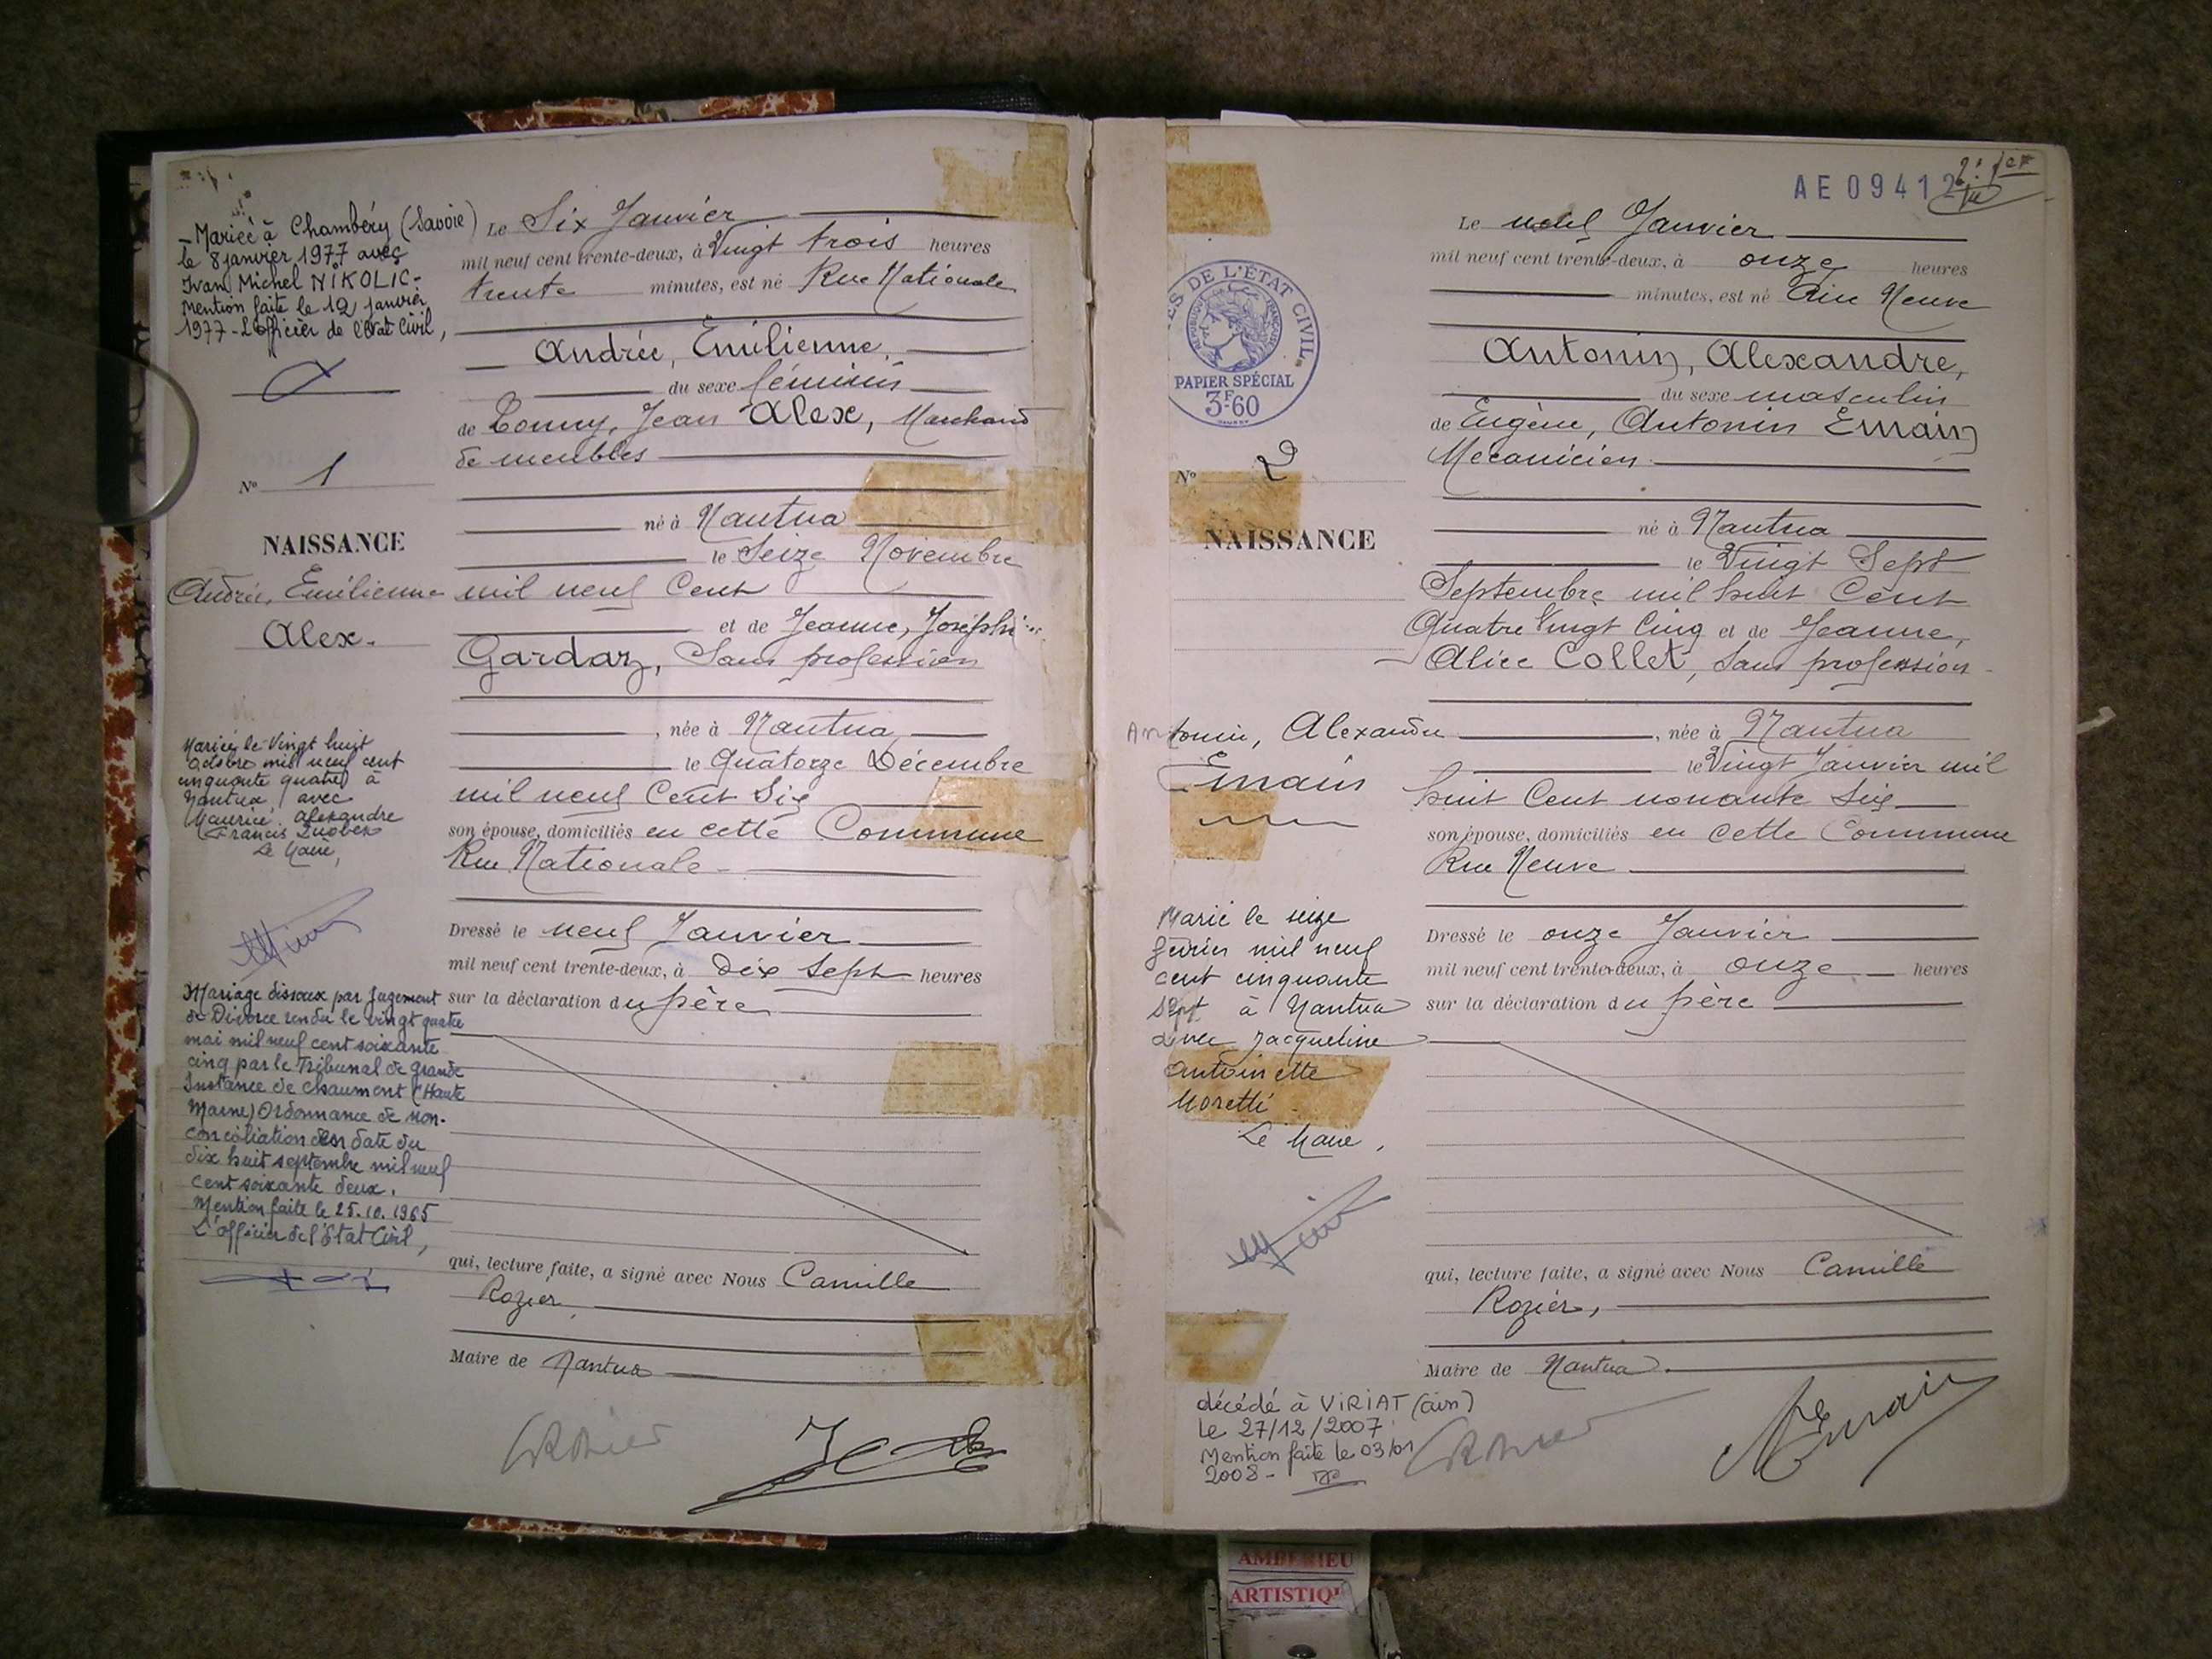 - Mariée à Chambéry (Savoie)
le 8 janvier 1977 avec
Ivan Michel NIKOLIC -
Mention faite le 12 janvier
1977 - L'officier de l'état Civil,
N° 1
NAISSANCE
Andrée, Emilienne
Alex.
Mariée le Vingt huit
octobre mil neuf cent
cinquante quatre à
Nantua, avec
Maurice, Alexandre
Francis
Le Maire,
Mariage dissoux par Jugement
de Divorce rendu le vingt quatre
mai mil neuf cent soixante
cinq par le Tribunal de grande
Instance de Chaumont (Haute
Marne) Ordonnance de non-
conciliation en date du
dix huit septembre mil neuf
cent soixante deux.
Mention faite le 25.10.1965
L'officier de l'Etat Civil,
Le Six Janvier
mil neuf cent trente-deux, à Vingt trois heures
trente minutes, est né Rue Nationale
Andrée, Emilienne,
du sexe féminin
de Jean Alex, Marchand
de meubles
né à Nantua
le Seize Novembre
mil neuf Cent
et de Jeanne,
Gardaz, Sans profession
, née à Nantua
le Quatorze Décembre
mil neuf Cent Six
son épouse, domiciliés en cette Commune
Rue Nationale
Dressé le neuf Janvier
mil neuf cent trente-deux, à dix sept heures
sur la déclaration du père
qui, lecture faite, a signé avec Nous Camille
Rozier,
Maire de Nantua
AE 09412
DE L'ÉTAT CIVIL
RÉPUBLIQUE FRANÇAISE
PAPIER SPÉCIAL
3F.60
N° 2
NAISSANCE
Antonin, Alexandre
Emain
Marié le seize
février mil neuf
cent cinquante
sept à Nantua
avec Jacqueline
Antoinette
Moretti -
Le Maire,
Le neuf Janvier
mil neuf cent trente-deux, à onze heures
minutes, est né Rue Neuve
Antonin, Alexandre,
du sexe masculin
de Eugène, Antonin Emain
Mécanicien
né à Nantua
le Vingt Sept
Septembre mil huit Cent
Quatre Vingt Cinq et de Jeanne,
Alice Collet, Sans profession
, née à Nantua
le Vingt Janvier mil
huit Cent nonante Six
son épouse, domiciliés en cette Commune
Rue Neuve
Dressé le onze Janvier
mil neuf cent trente-deux, à onze heures
sur la déclaration du père
qui, lecture faite, a signé avec Nous Camille
Rozier,
Maire de Nantua.
décédé à VIRIAT (ain)
le 27/12/2007
Mention faite le 03/01
2008 -
AMBERIEU
ARTISTIQ